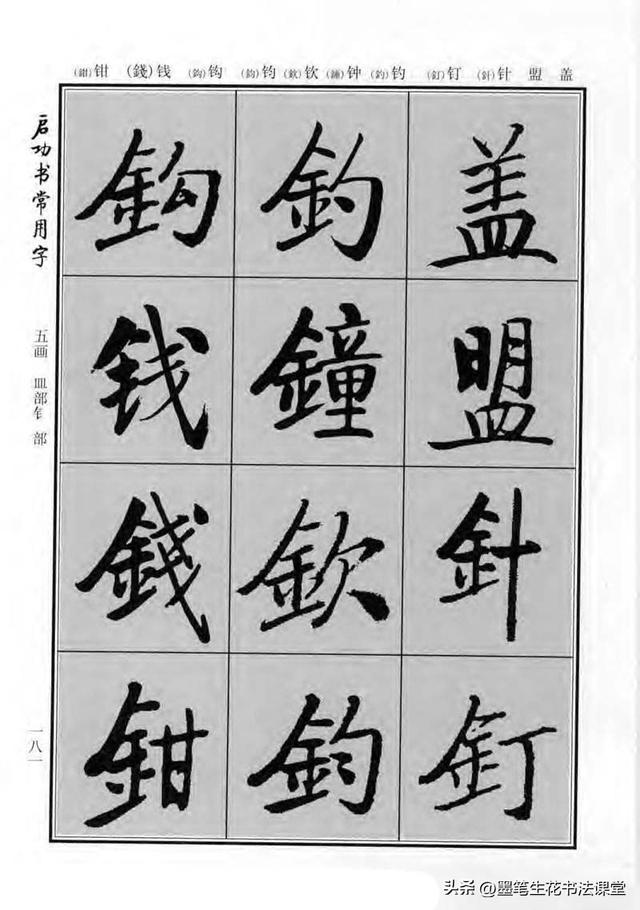 (鉗)钳 (錢)钱 (鈎)钩 (鈞)钧 (欽)钦 (鍾)钟 (釣)钓 (釘)钉 (針)针 盟 盖
启功书常用字
五画 皿部 钅部
一八一
盖
盟
針
釘
釣
鐘
欽
鈞
鈎
钱
錢
鉗
头条 @墨笔生花书法课堂